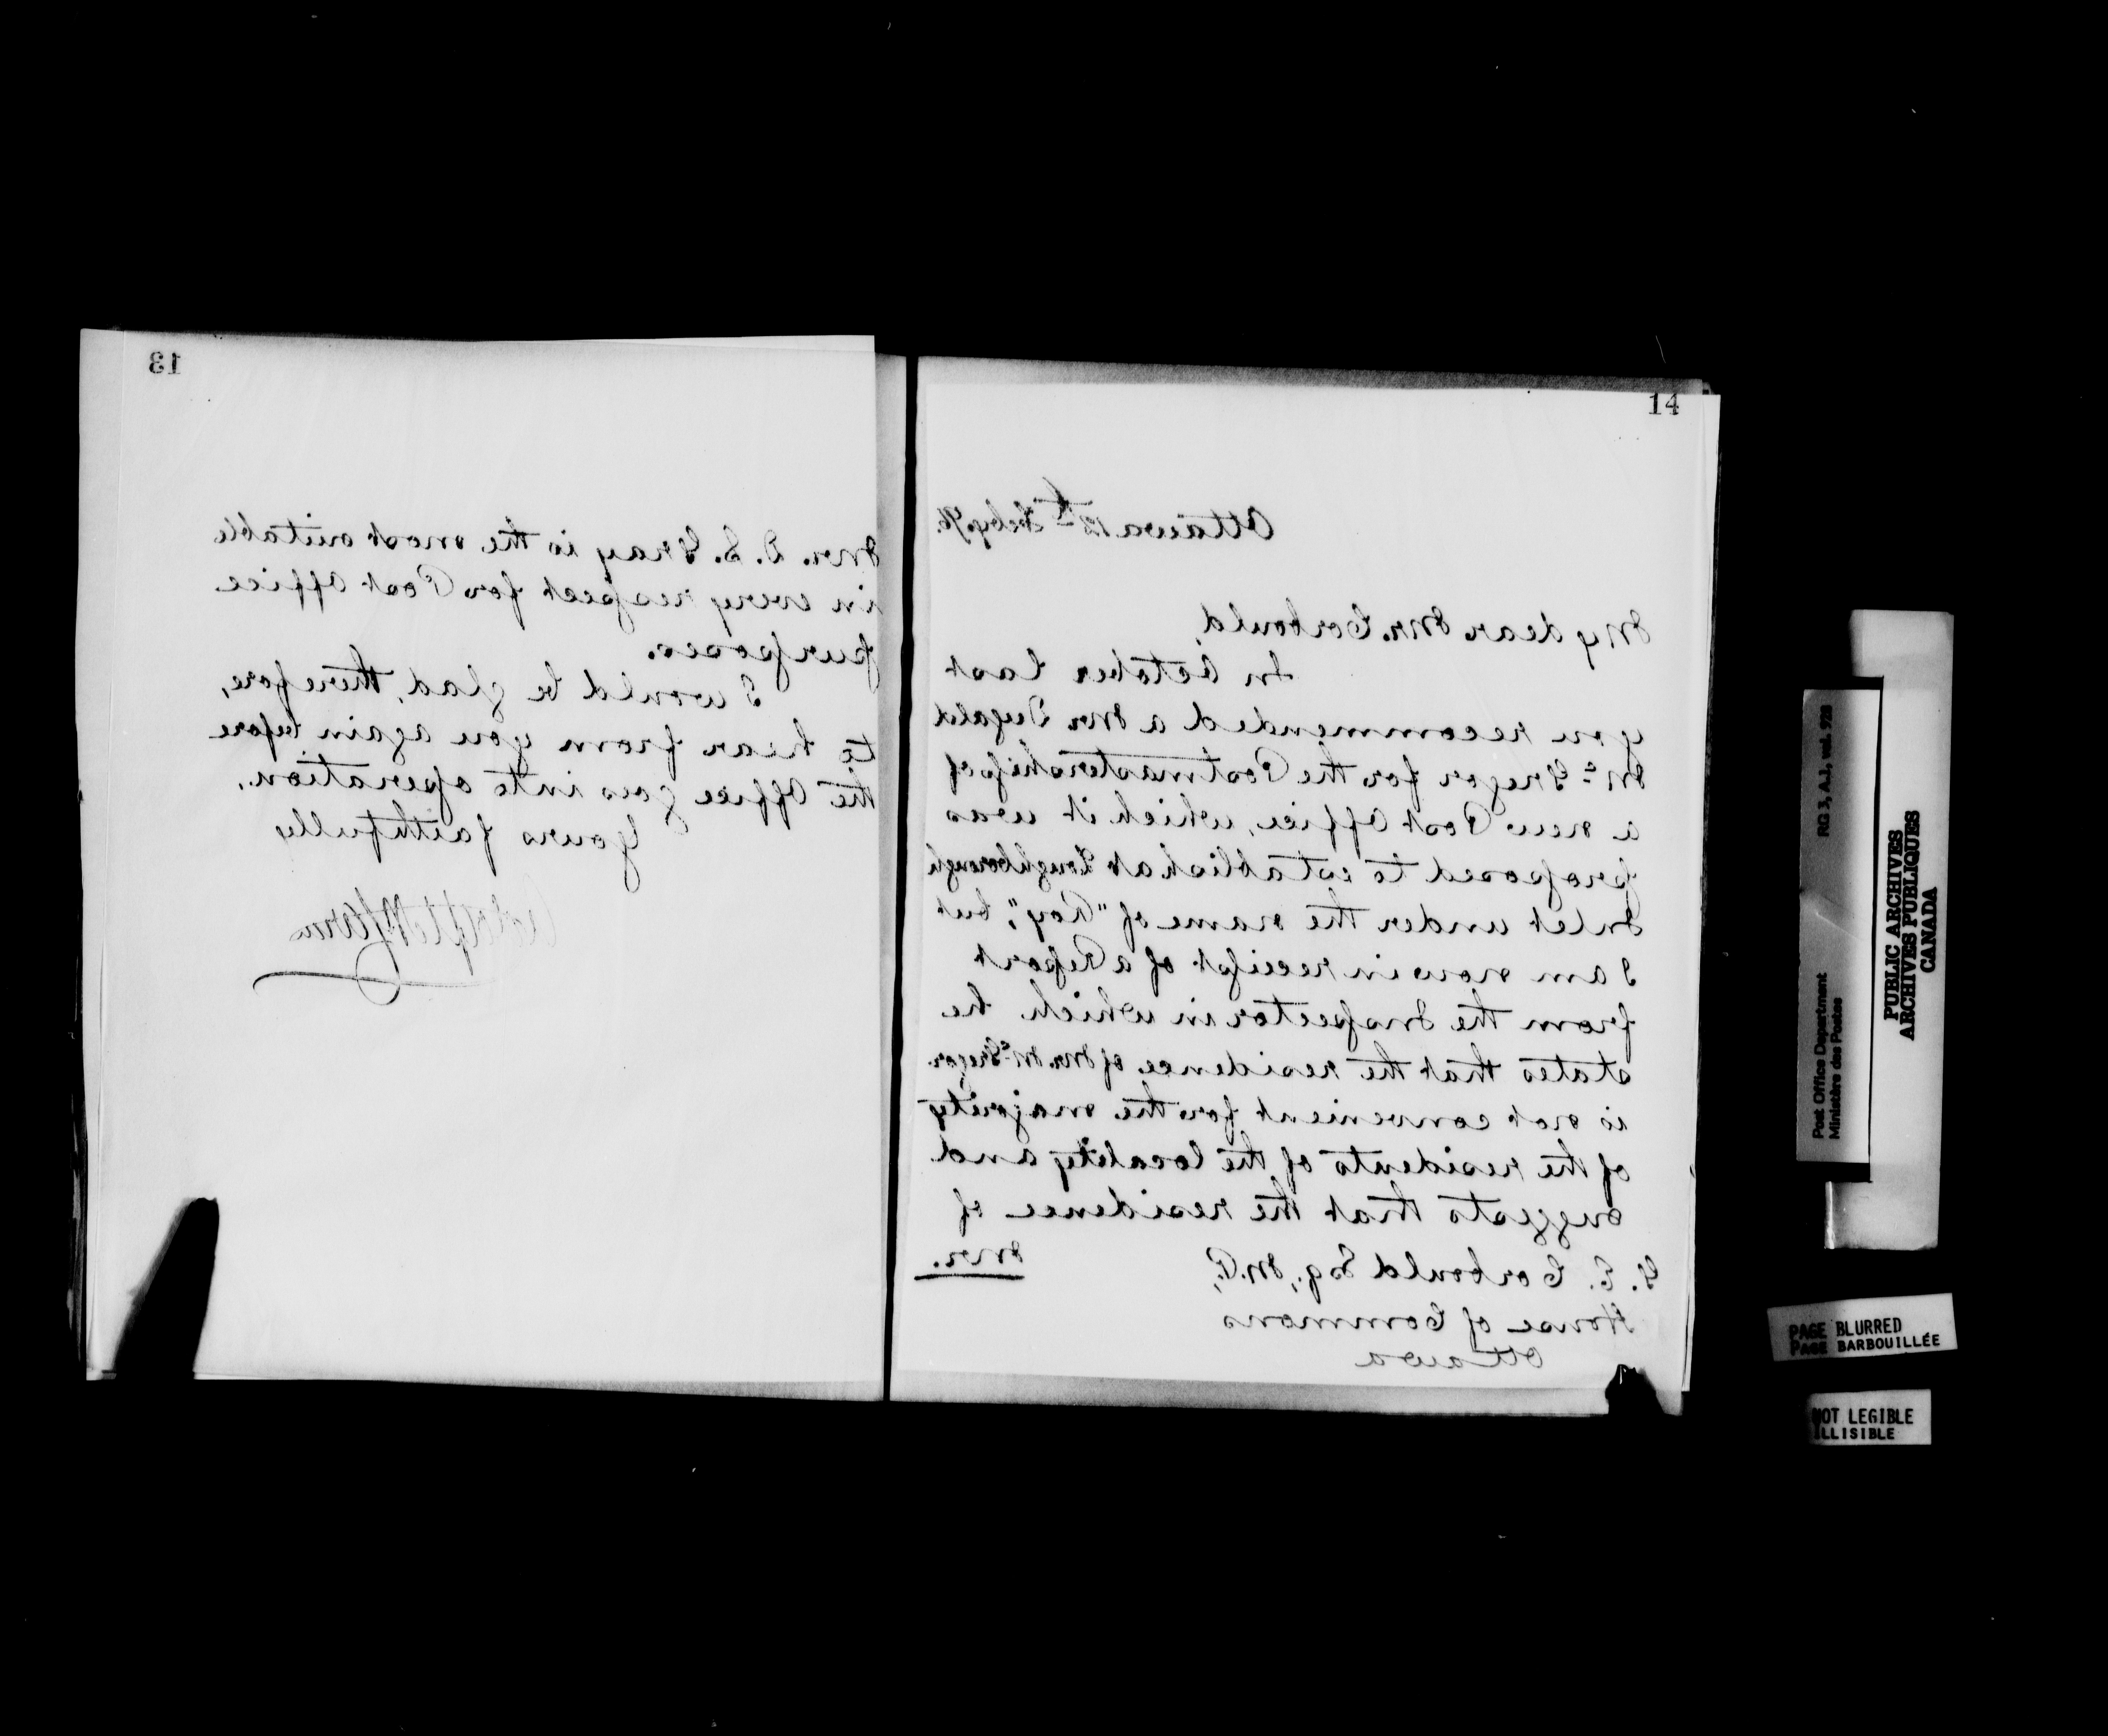 14
Ottawa 12th Feby. 96.
My dear Mr. Corbould,
In October last
you recommended a Mr Dugald
McGregor for the Postmastership of
a new Post Office, which it was
proposed to establish at Loughborough
Inlet under the name of "Roy", but
I am now in receipt of a Report
from the Inspector in which he
states that the residence of Mr. McGregor
is not convenient for the majority
of the residents of the locality and
suggests that the residence of
Mr.
G. E. Corbould Esq., M.P.,
House of Commons
Ottawa
13
Mr. D. S. Gray is the most suitable
in every respect for Post Office
purposes.
I would be glad, therefore,
to hear from you again before
the Office goes into operation.
Yours faithfully
Post Office Department RG 3, A.1, vol. 928
Ministère des Postes
PUBLIC ARCHIVES
ARCHIVES PUBLIQUES
CANADA
PAGE BLURRED
PAGE BARBOUILLÉE
NOT LEGIBLE
ILLISIBLE